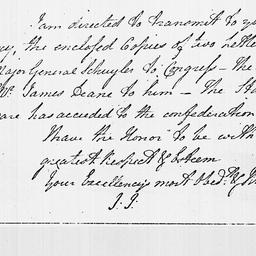 I am directed to transmit to yo
cy, the enclosed Copies of two Lette
Major General Schuyler to Congress - the
Mr. James Deane to him - The Sta
are has acceded to the confederation
I have the Honor to be with
greatest Respect & Esteem
Your Excellency's most Obed.t &
J. J.